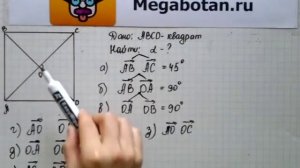 Megabotan.ru
Дано: ABCD - квадрат
Найти: α - ?
B C
а) AB AC = 45°
б) AB DA = 90°
в) OA OB = 90°
A
г) AO
з) AO OC
д) OA